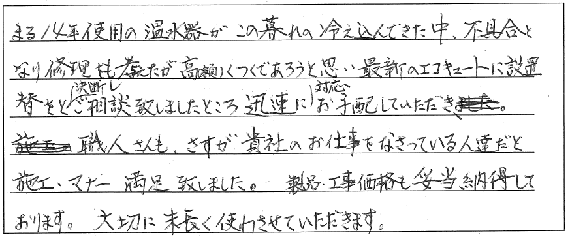 まる14年使用の温水器がこの暮れの冷え込んできた中、不具合と
なり修理も考えたが高額につくであろうと思い最新のエコキュートに設置
替えを決断しご相談致しましたところ迅速に対応お手配していただき。
職人さんも、さすが貴社のお仕事をなさっている人達だと
施工、マナー満足致しました。 製品・工事価格も妥当納得して
おります。 大切に末長く使わさせていただきます。